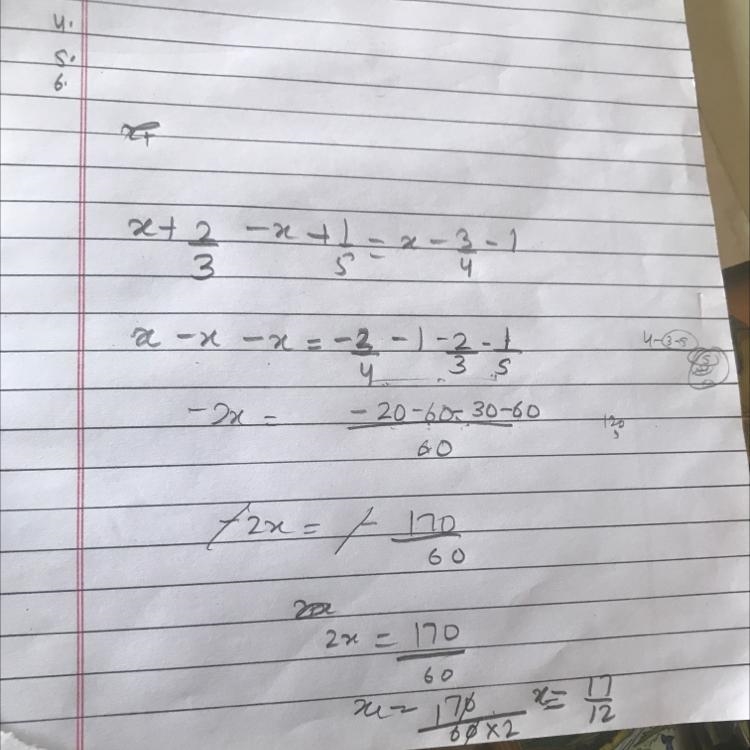 4.
5.
6.
x+
x + 2/3 - x + 1/5 = x - 3/4 - 1
x - x - x = -3/4 - 1 - 2/3 - 1/5
4-3-5
-2x = (-20-60-30-60)/60
120
-2x = - 170/60
2x = 170/60
x = 170/(60×2) x = 17/12